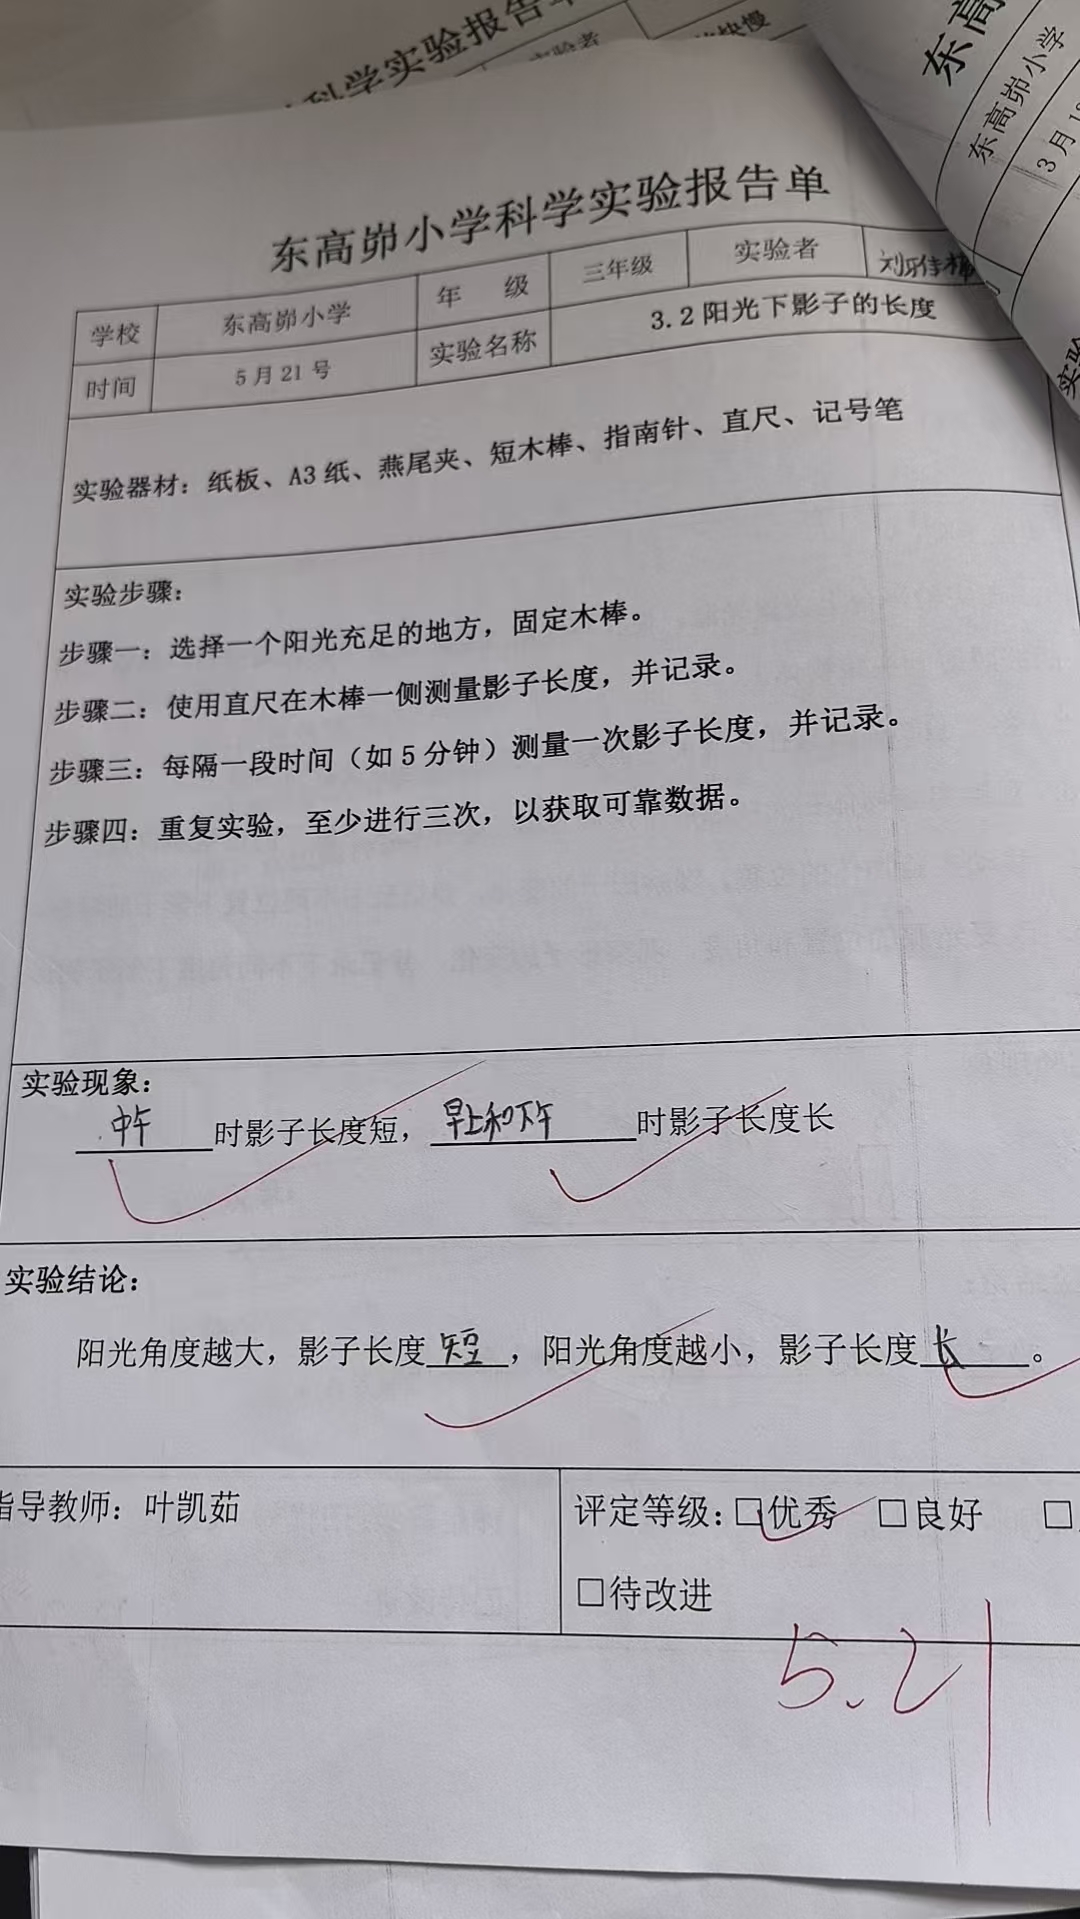 科学实验报告单
实验者
快慢
东高
东高峁小学
3月1
实验
东高峁小学科学实验报告单
学校 东高峁小学 年 级 三年级 实验者
时间 5月21号 实验名称 3.2阳光下影子的长度
实验器材：纸板、A3纸、燕尾夹、短木棒、指南针、直尺、记号笔
实验步骤：
步骤一：选择一个阳光充足的地方，固定木棒。
步骤二：使用直尺在木棒一侧测量影子长度，并记录。
步骤三：每隔一段时间（如5分钟）测量一次影子长度，并记录。
步骤四：重复实验，至少进行三次，以获取可靠数据。
实验现象：
中午时影子长度短，早上和下午时影子长度长
实验结论：
阳光角度越大，影子长度短，阳光角度越小，影子长度长。
指导教师：叶凯茹 评定等级：□优秀 □良好 □
□待改进
5.21